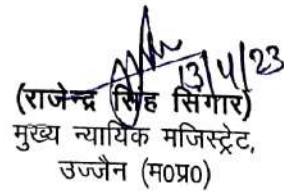 13/4/23
(राजेन्द्र सिंह सिंगार)
मुख्य न्यायिक मजिस्ट्रेट,
उज्जैन (म0प्र0)